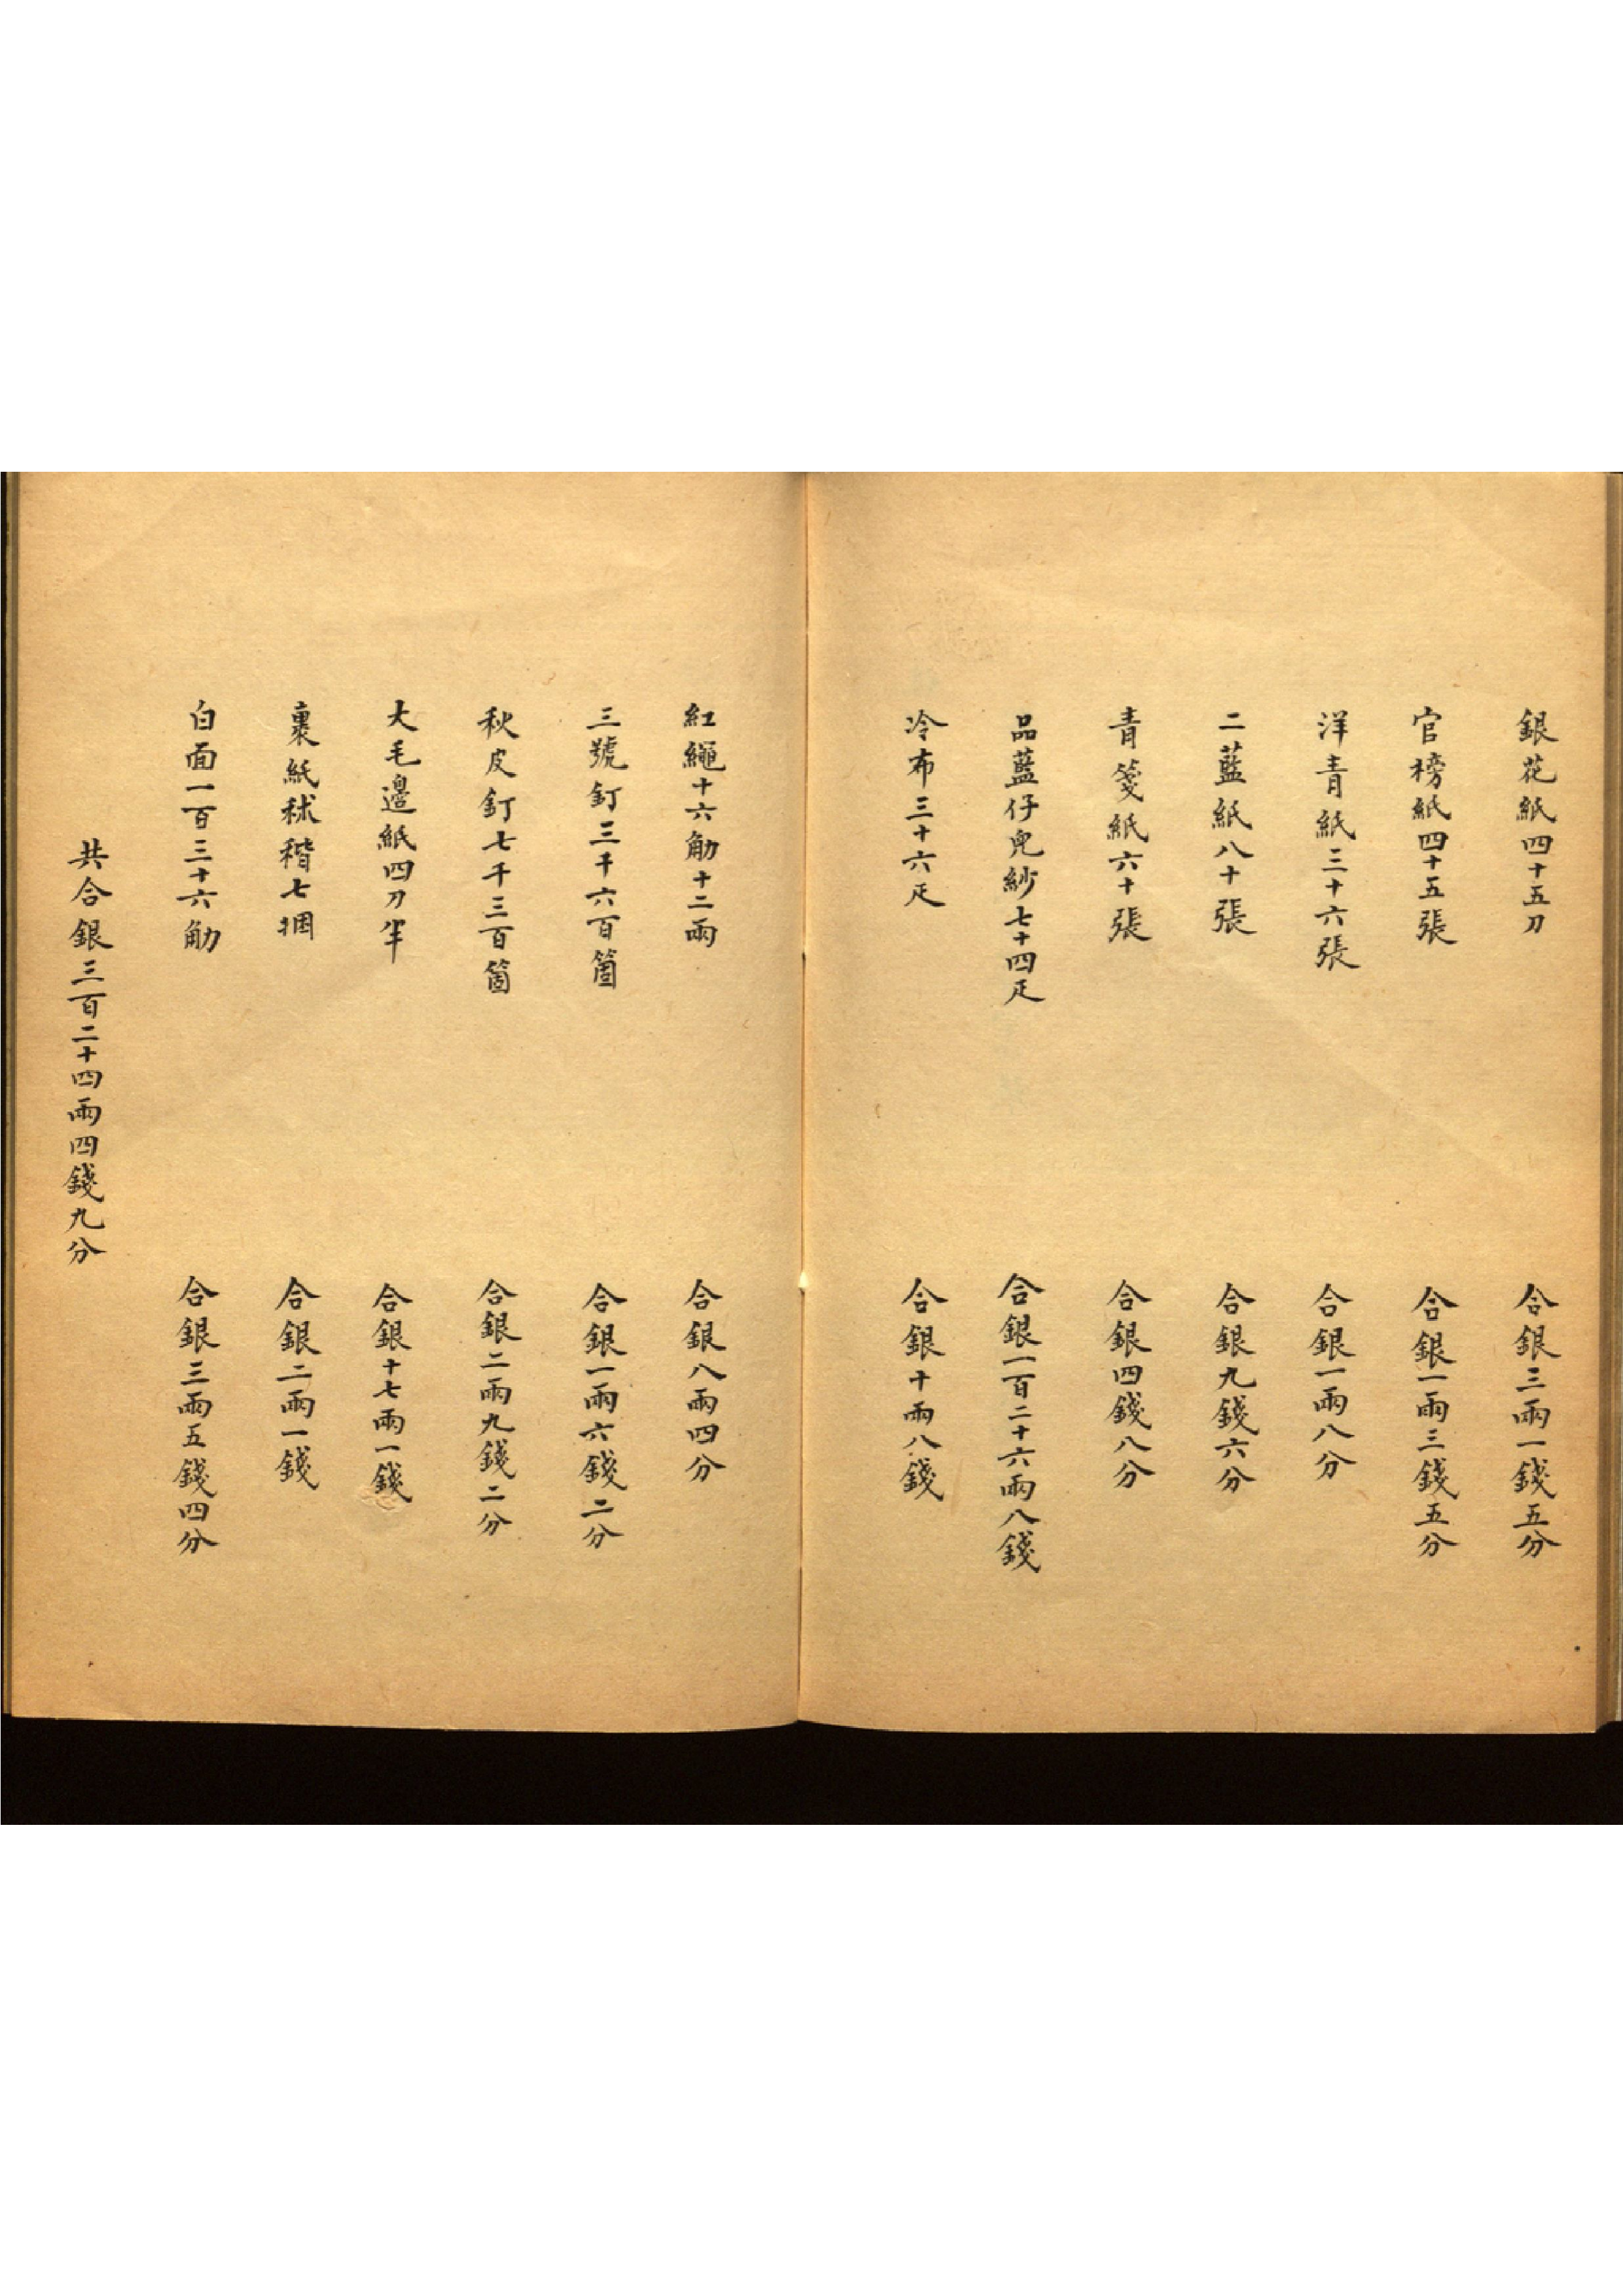 銀花紙四十五刀　合銀三兩一錢五分
官榜紙四十五張　合銀一兩三錢五分
洋青紙三十六張　合銀一兩八分
二藍紙八十張　合銀九錢六分
青箋紙六十張　合銀四錢八分
品藍仔兜紗七十四疋　合銀一百二十六兩八錢
冷布三十六疋　合銀十兩八錢
紅繩十六觔十二兩　合銀八兩四分
三號釘三千六百箇　合銀一兩六錢二分
秋皮釘七千三百箇　合銀二兩九錢二分
大毛邊紙四刀半　合銀十七兩一錢
裹紙秫稭七捆　合銀二兩一錢
白面一百三十六觔　合銀三兩五錢四分
共合銀三百二十四兩四錢九分